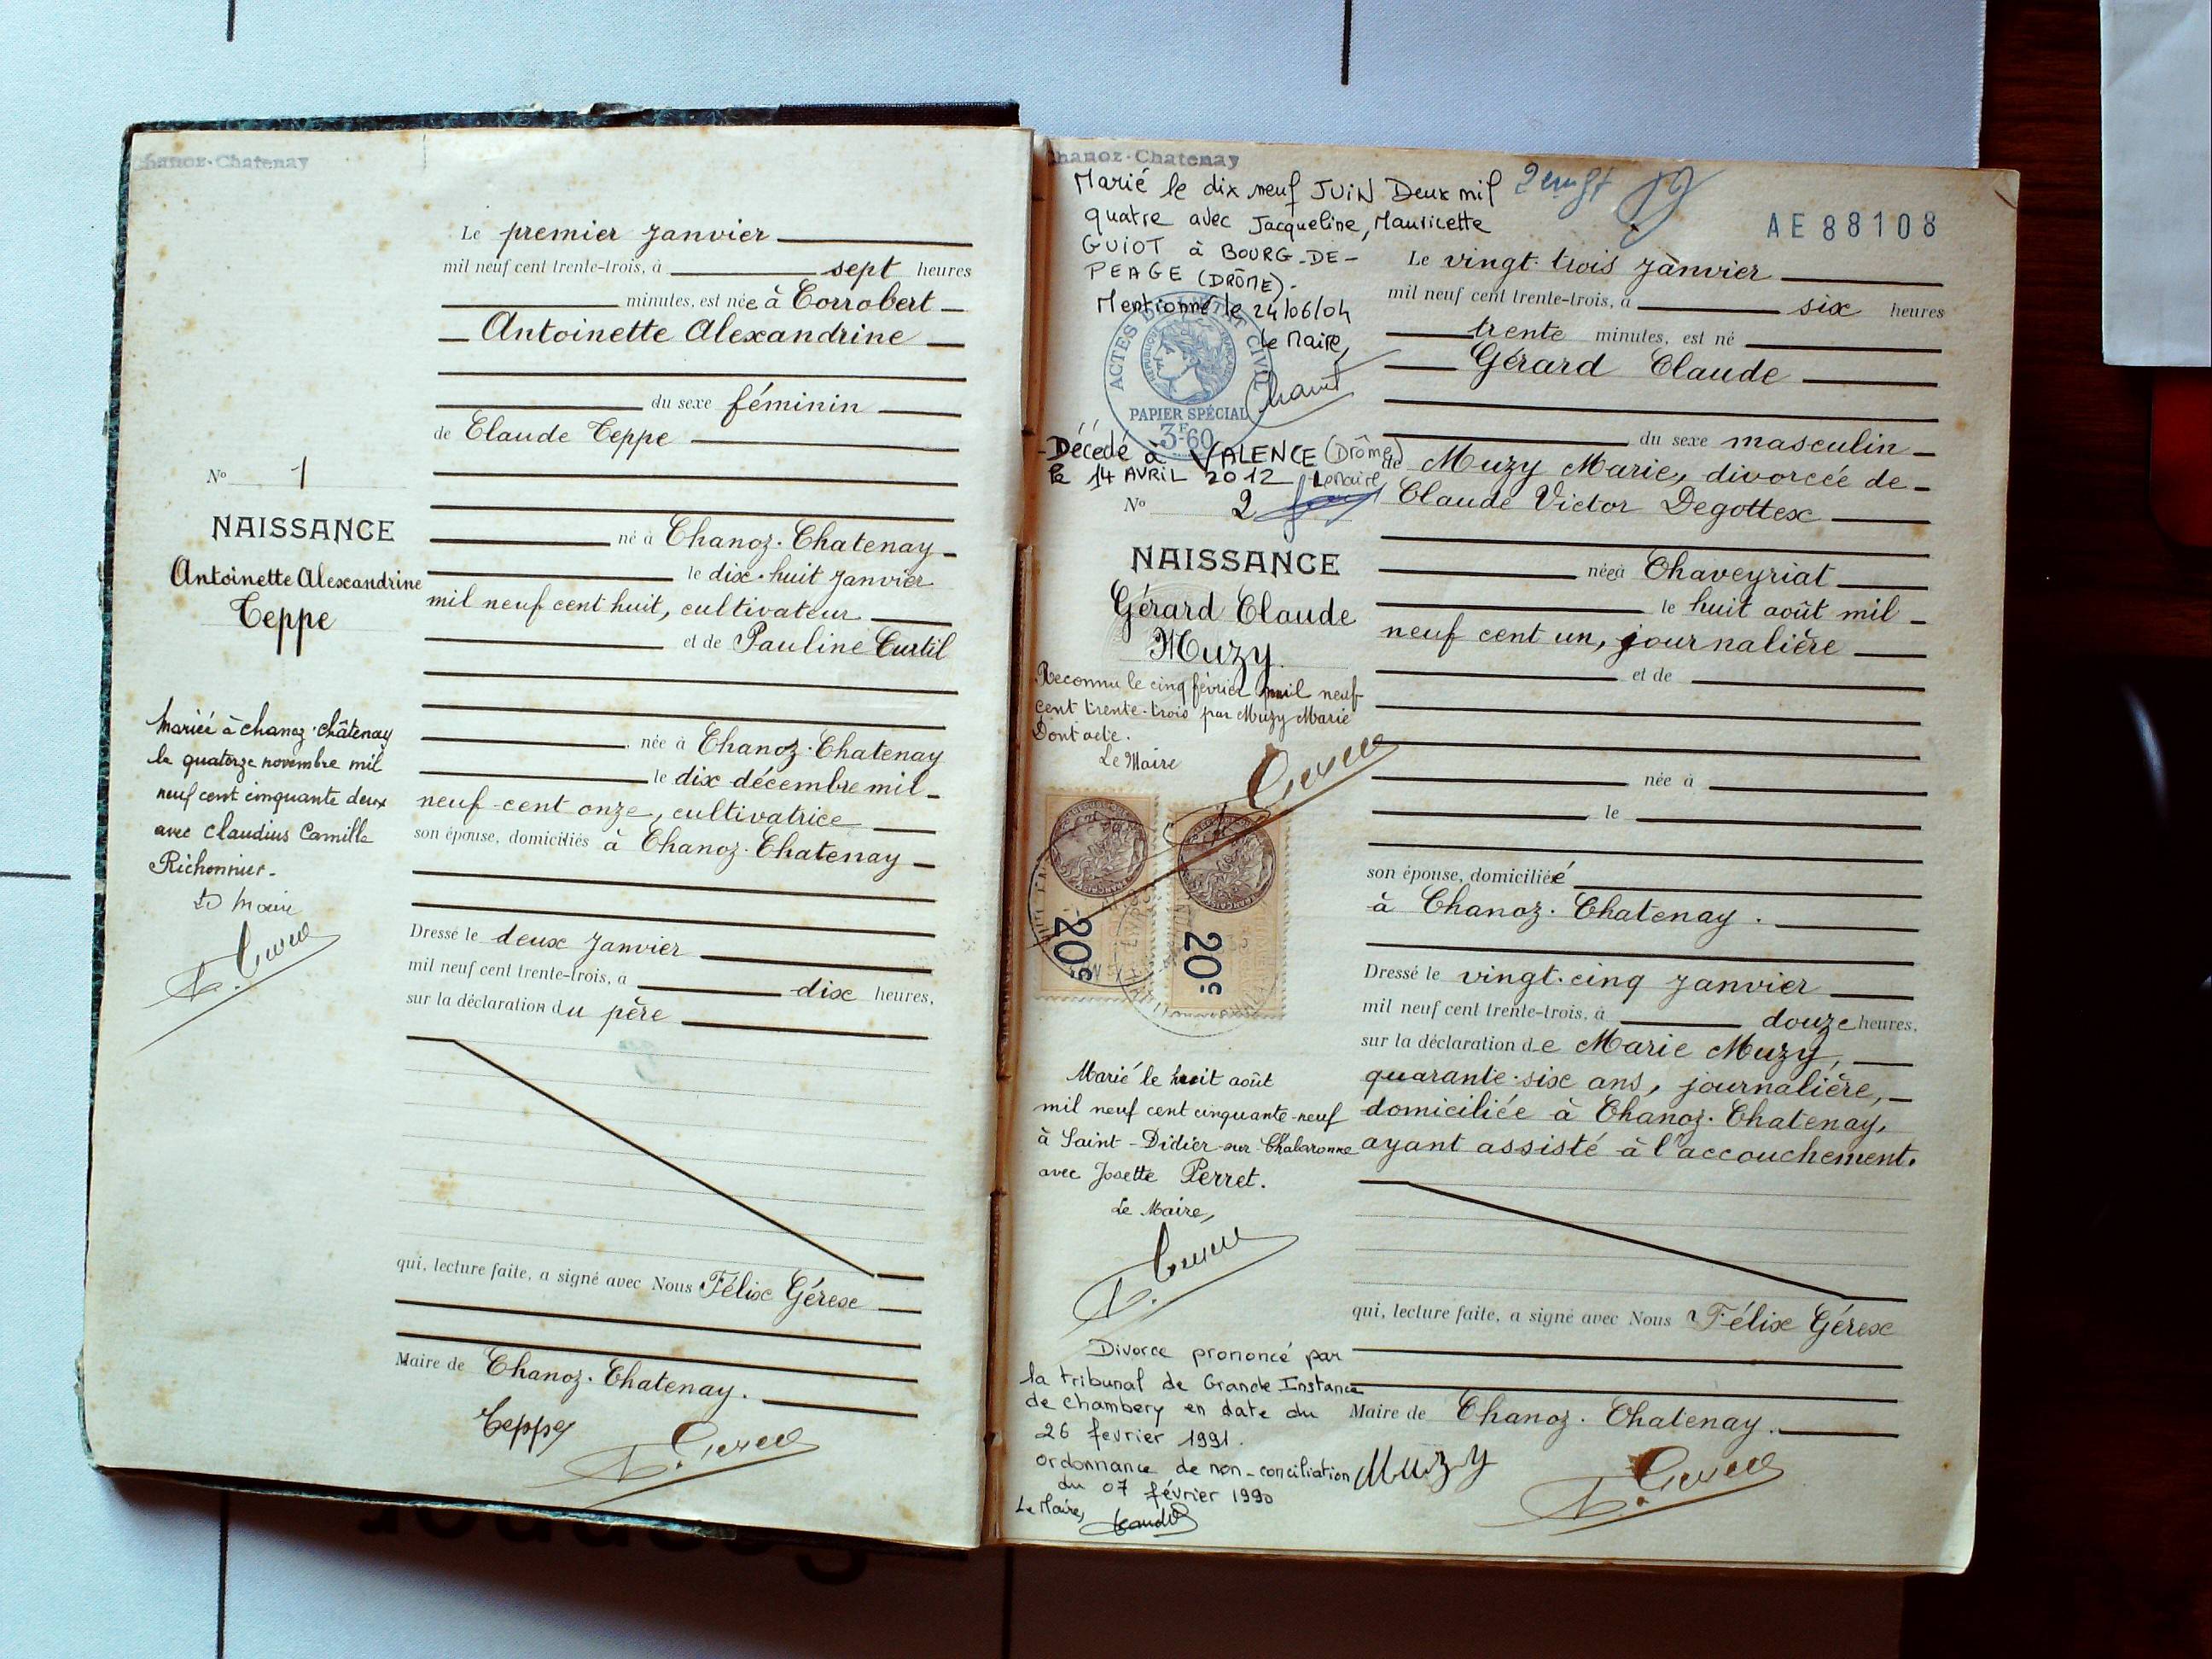 Chanoz-Chatenay
Le premier Janvier
mil neuf cent trente-trois, à sept heures
minutes, est née à Corrobert
Antoinette Alexandrine
du sexe féminin
de Claude Teppe
N° 1
NAISSANCE
Antoinette Alexandrine
Teppe
né à Chanoz-Chatenay
le dix-huit Janvier
mil neuf cent huit, cultivateur
et de Pauline Curtil
née à Chanoz-Chatenay
le dix décembre mil
neuf cent onze, cultivatrice
son épouse, domiciliés à Chanoz-Chatenay
Mariée à Chanoz-Châtenay
le quatorze novembre mil
neuf cent cinquante deux
avec Claudius Camille
Richonnier.
Le Maire
Dressé le deux Janvier
mil neuf cent trente-trois, à dix heures,
sur la déclaration du père
qui, lecture faite, a signé avec Nous Félix Gérex
Maire de Chanoz-Chatenay.
Teppe
Chanoz-Chatenay
Marié le dix neuf JUIN Deux mil
quatre avec Jacqueline, Mauricette
GUIOT à BOURG-DE-
PEAGE (DRÔME).
Mentionné le 24/06/04
Le Maire,
ACTES DE L'ETAT CIVIL
PAPIER SPÉCIAL
3F60
Décédé à VALENCE (Drôme)
le 14 AVRIL 2012 Le Maire
N° 2
NAISSANCE
Gérard Claude
Muzy
Reconnu le cinq février mil neuf
cent trente-trois par Muzy Marie
Dont acte.
Le Maire
20c
20c
Marié le huit août
mil neuf cent cinquante-neuf
à Saint-Didier-sur-Chalaronne
avec Josette Perret.
Le Maire,
Divorce prononcé par
la tribunal de Grande Instance
de Chambery en date du
26 fevrier 1991.
ordonnance de non-conciliation
du 07 février 1990
Le Maire,
AE 88108
Le vingt-trois Janvier
mil neuf cent trente-trois, à six heures
trente minutes, est né
Gérard Claude
du sexe masculin
de Muzy Marie, divorcée de
Claude Victor Degottex
née à Chaveyriat
le huit août mil
neuf cent un, journalière
et de
née à
le
son épouse, domiciliée
à Chanoz-Chatenay.
Dressé le vingt-cinq Janvier
mil neuf cent trente-trois, à douze heures,
sur la déclaration de Marie Muzy,
quarante-six ans, journalière,
domiciliée à Chanoz-Chatenay,
ayant assisté à l'accouchement.
qui, lecture faite, a signé avec Nous Félix Gérex
Maire de Chanoz-Chatenay.
Muzy